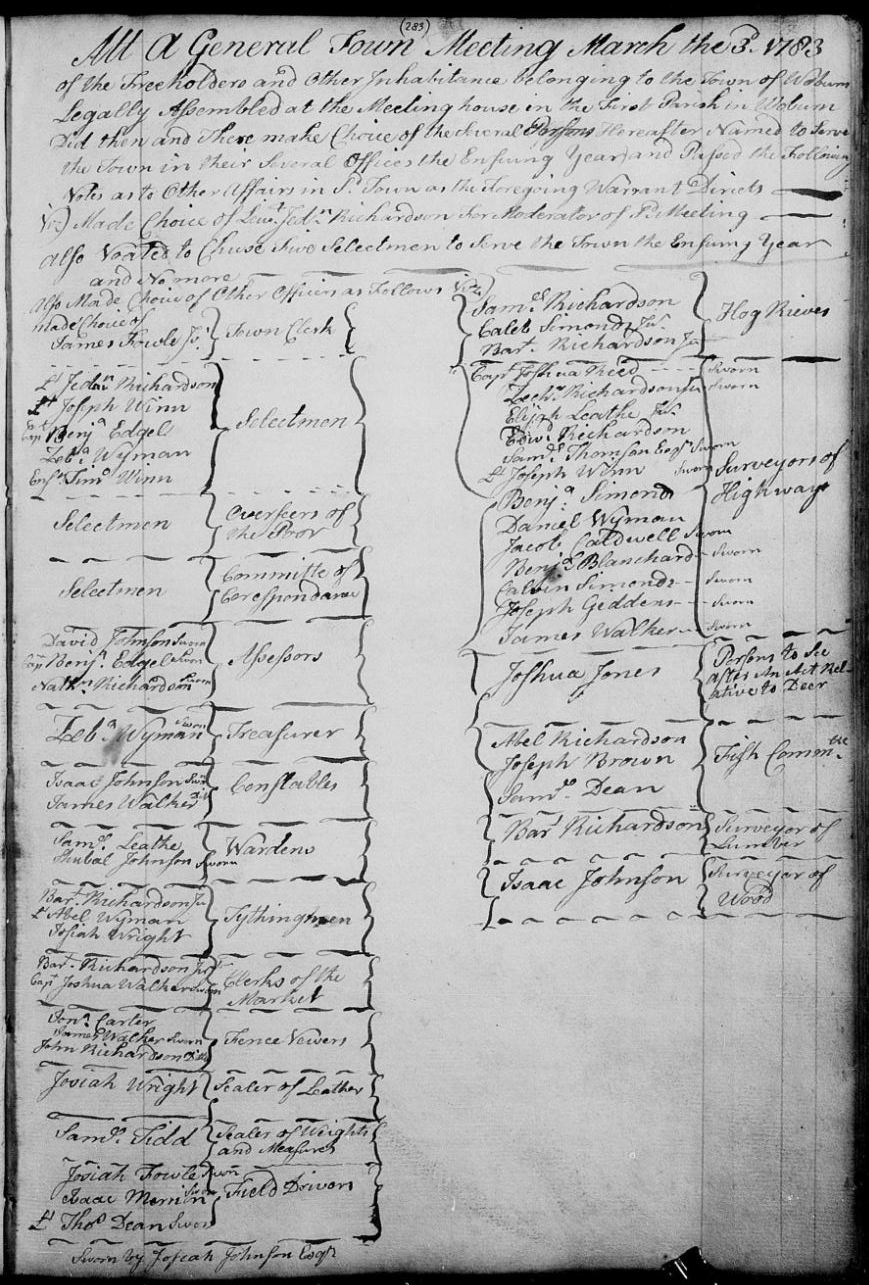 (283)
Att A General Town Meeting March the 3d. 1783
of the Freeholders and Other Inhabitance belonging to the Town of Woburn
Legally Assembled at the Meeting house in the First Parish in Woburn
Did then and There make Choice of the Several Persons Hereafter Named to Serve
the Town in their Several Offices the Ensuing Year and Passed the Following
Votes as to Other Affairs in Sd. Town as the Foregoing Warrant Directs
Viz) Made Choice of Leut. Jedn. Richardson For Moderator of Sd. Meeting
also Voated to Chuse Five Selectmen to Serve the Town the Ensuing Year
and No more
also Made Choice of Other Officers as Follows Viz)
made Choice of
James Fowle Jr. Town Clerk
Lt Jedun Richardson
Lt Joseph Winn
Capt Benja Edgel
Zeba Wyman
Ensn Timo Winn
Selectmen
Selectmen Overseers of
the Poor
Selectmen Committe of
Corespondance
David Johnson Sworn
Capt Benja. Edgel Sworn
Nathn Richardson Sworn
Assessors
Zeba Wyman Sworn Treasurer
Isaac Johnson Swn
James Walker Do
Constables
Saml. Leathe
Shubal Johnson Sworn
Wardens
Bart. Richardson Jr
Lt Abel Wyman
Josiah Wright
Tythingmen
Bart. Richardson Jr
Capt Joshua Walker Sworn
Clerks of the
Market
Jona. Carter
James Walker Sworn
John Richardson Ditto
Fence Vewers
Josiah Wright Sealer of Leather
Saml. Tidd Sealer of Weights
and Measures
Josiah Fowle Sworn
Isaac Merrin Sworn
Lt Thos Dean Sworn
Field Drivers
Sworn by Josiah Johnson Esqr
Saml. Richardson
Caleb Simonds Jr.
Bart. Richardson Jr
Hog Rieves
Capt Joshua Reed Sworn
Zechr Richardson Jr Sworn
Elijah Leathe Jr.
Edwd Richardson
Saml. Thomson Esqr Sworn
Lt Joseph Winn Sworn
Benja. Simonds
Daniel Wyman
Jacob Caldwell Sworn
Benja Blanchard Sworn
Calvin Simonds Sworn
Joseph Geddens Sworn
James Walker Sworn
Surveyors of
Highways
Joshua Jones Persons to See
after An Act Rel-
ative to Deer
Abel Richardson
Joseph Brown
Saml. Dean
Fish Committee
Bart Richardson Surveyor of
Lumber
Isaac Johnson Surveyor of
Wood